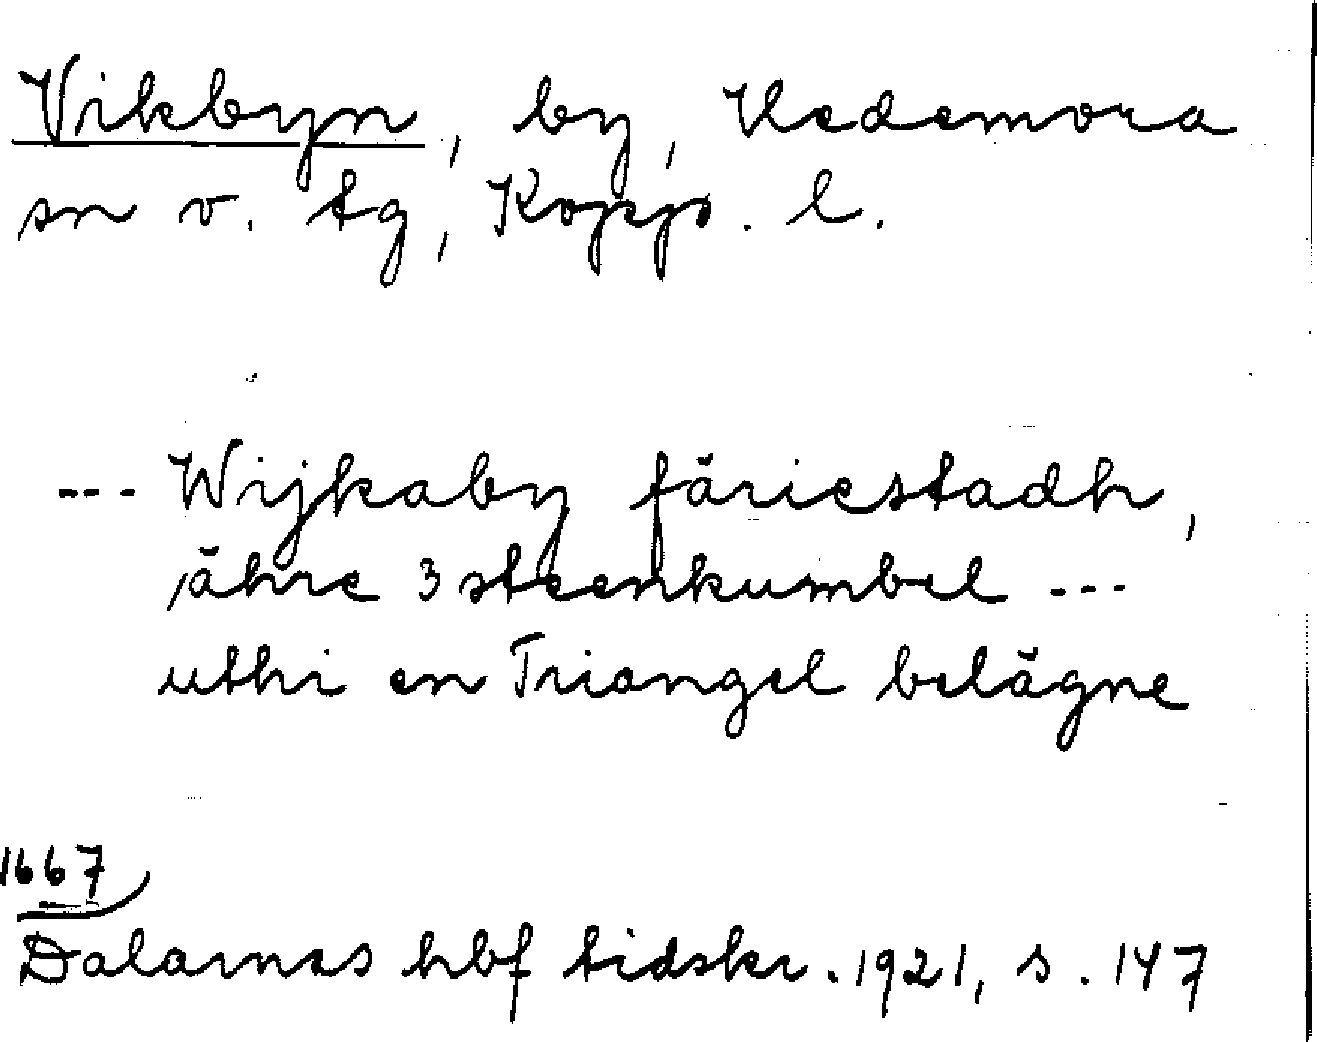 Vikbyn, by, Hedemora
sn v. tg, Kopp. l.
--- Wijkaby färiestadh,
ähre 3 steenkumbel ---
uthi en Triangel belägne
1667
Dalarnas hbf tidskr. 1921, s. 147